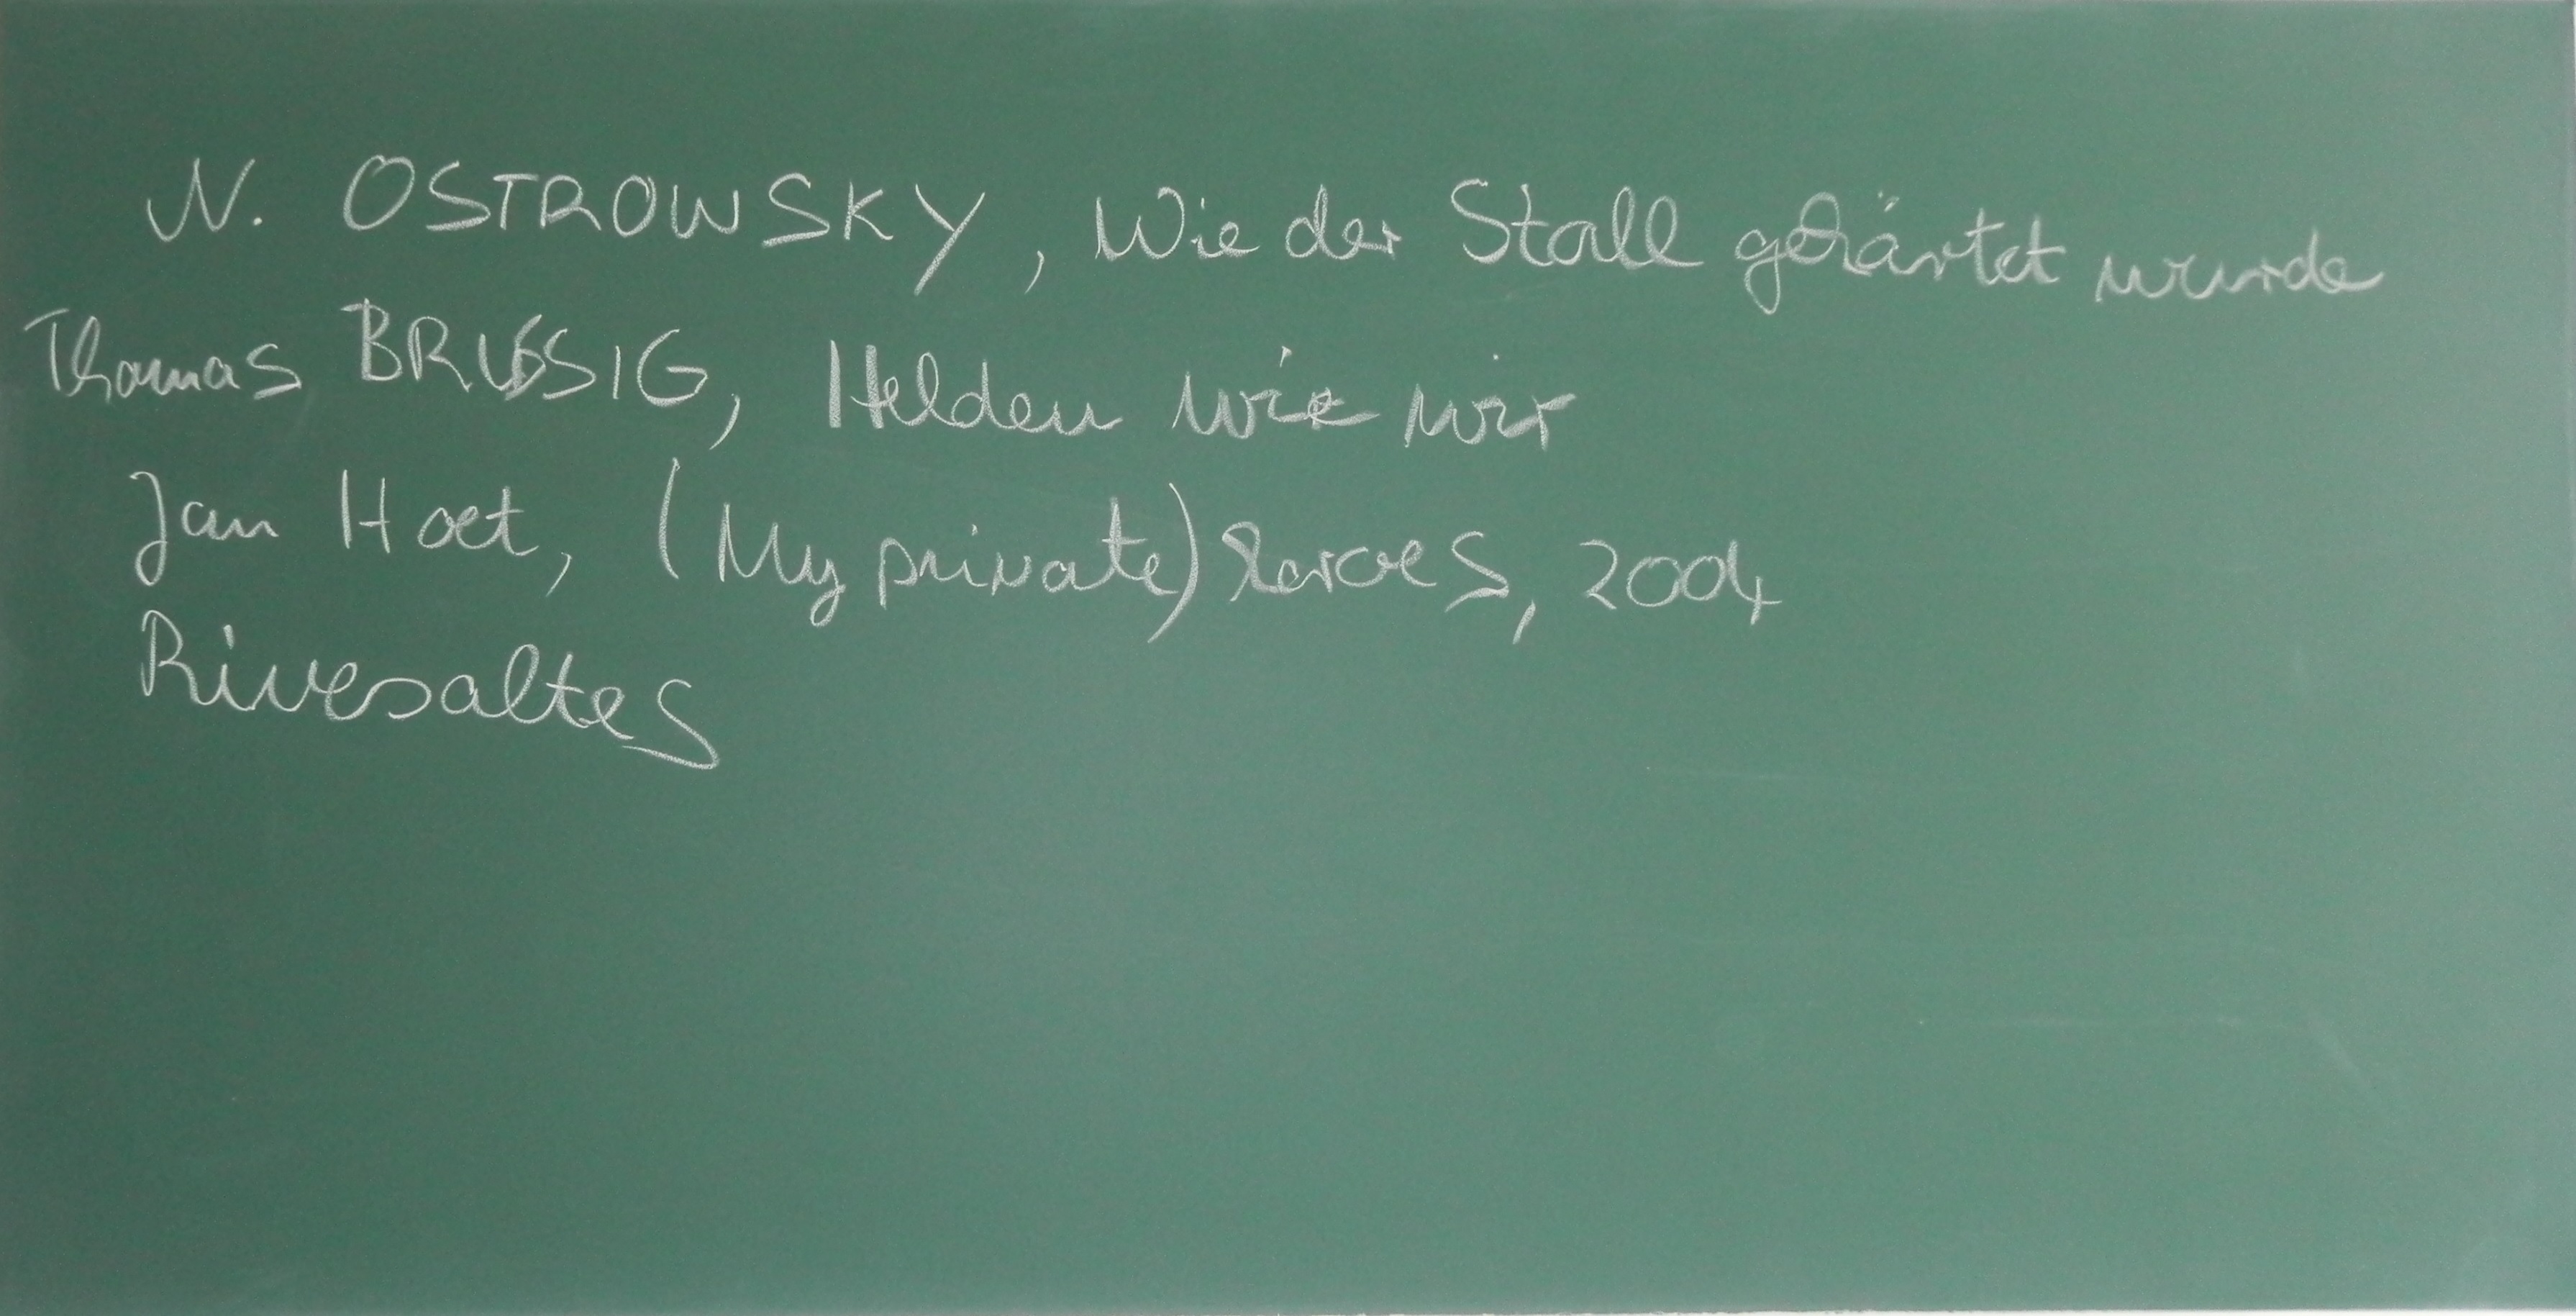 N. OSTROWSKY, Wie der Stall gehärtet wurde
Thomas BRUSSIG, Helden wie wir
Jan Hoet, (My private) heroes, 2004
Rivesaltes